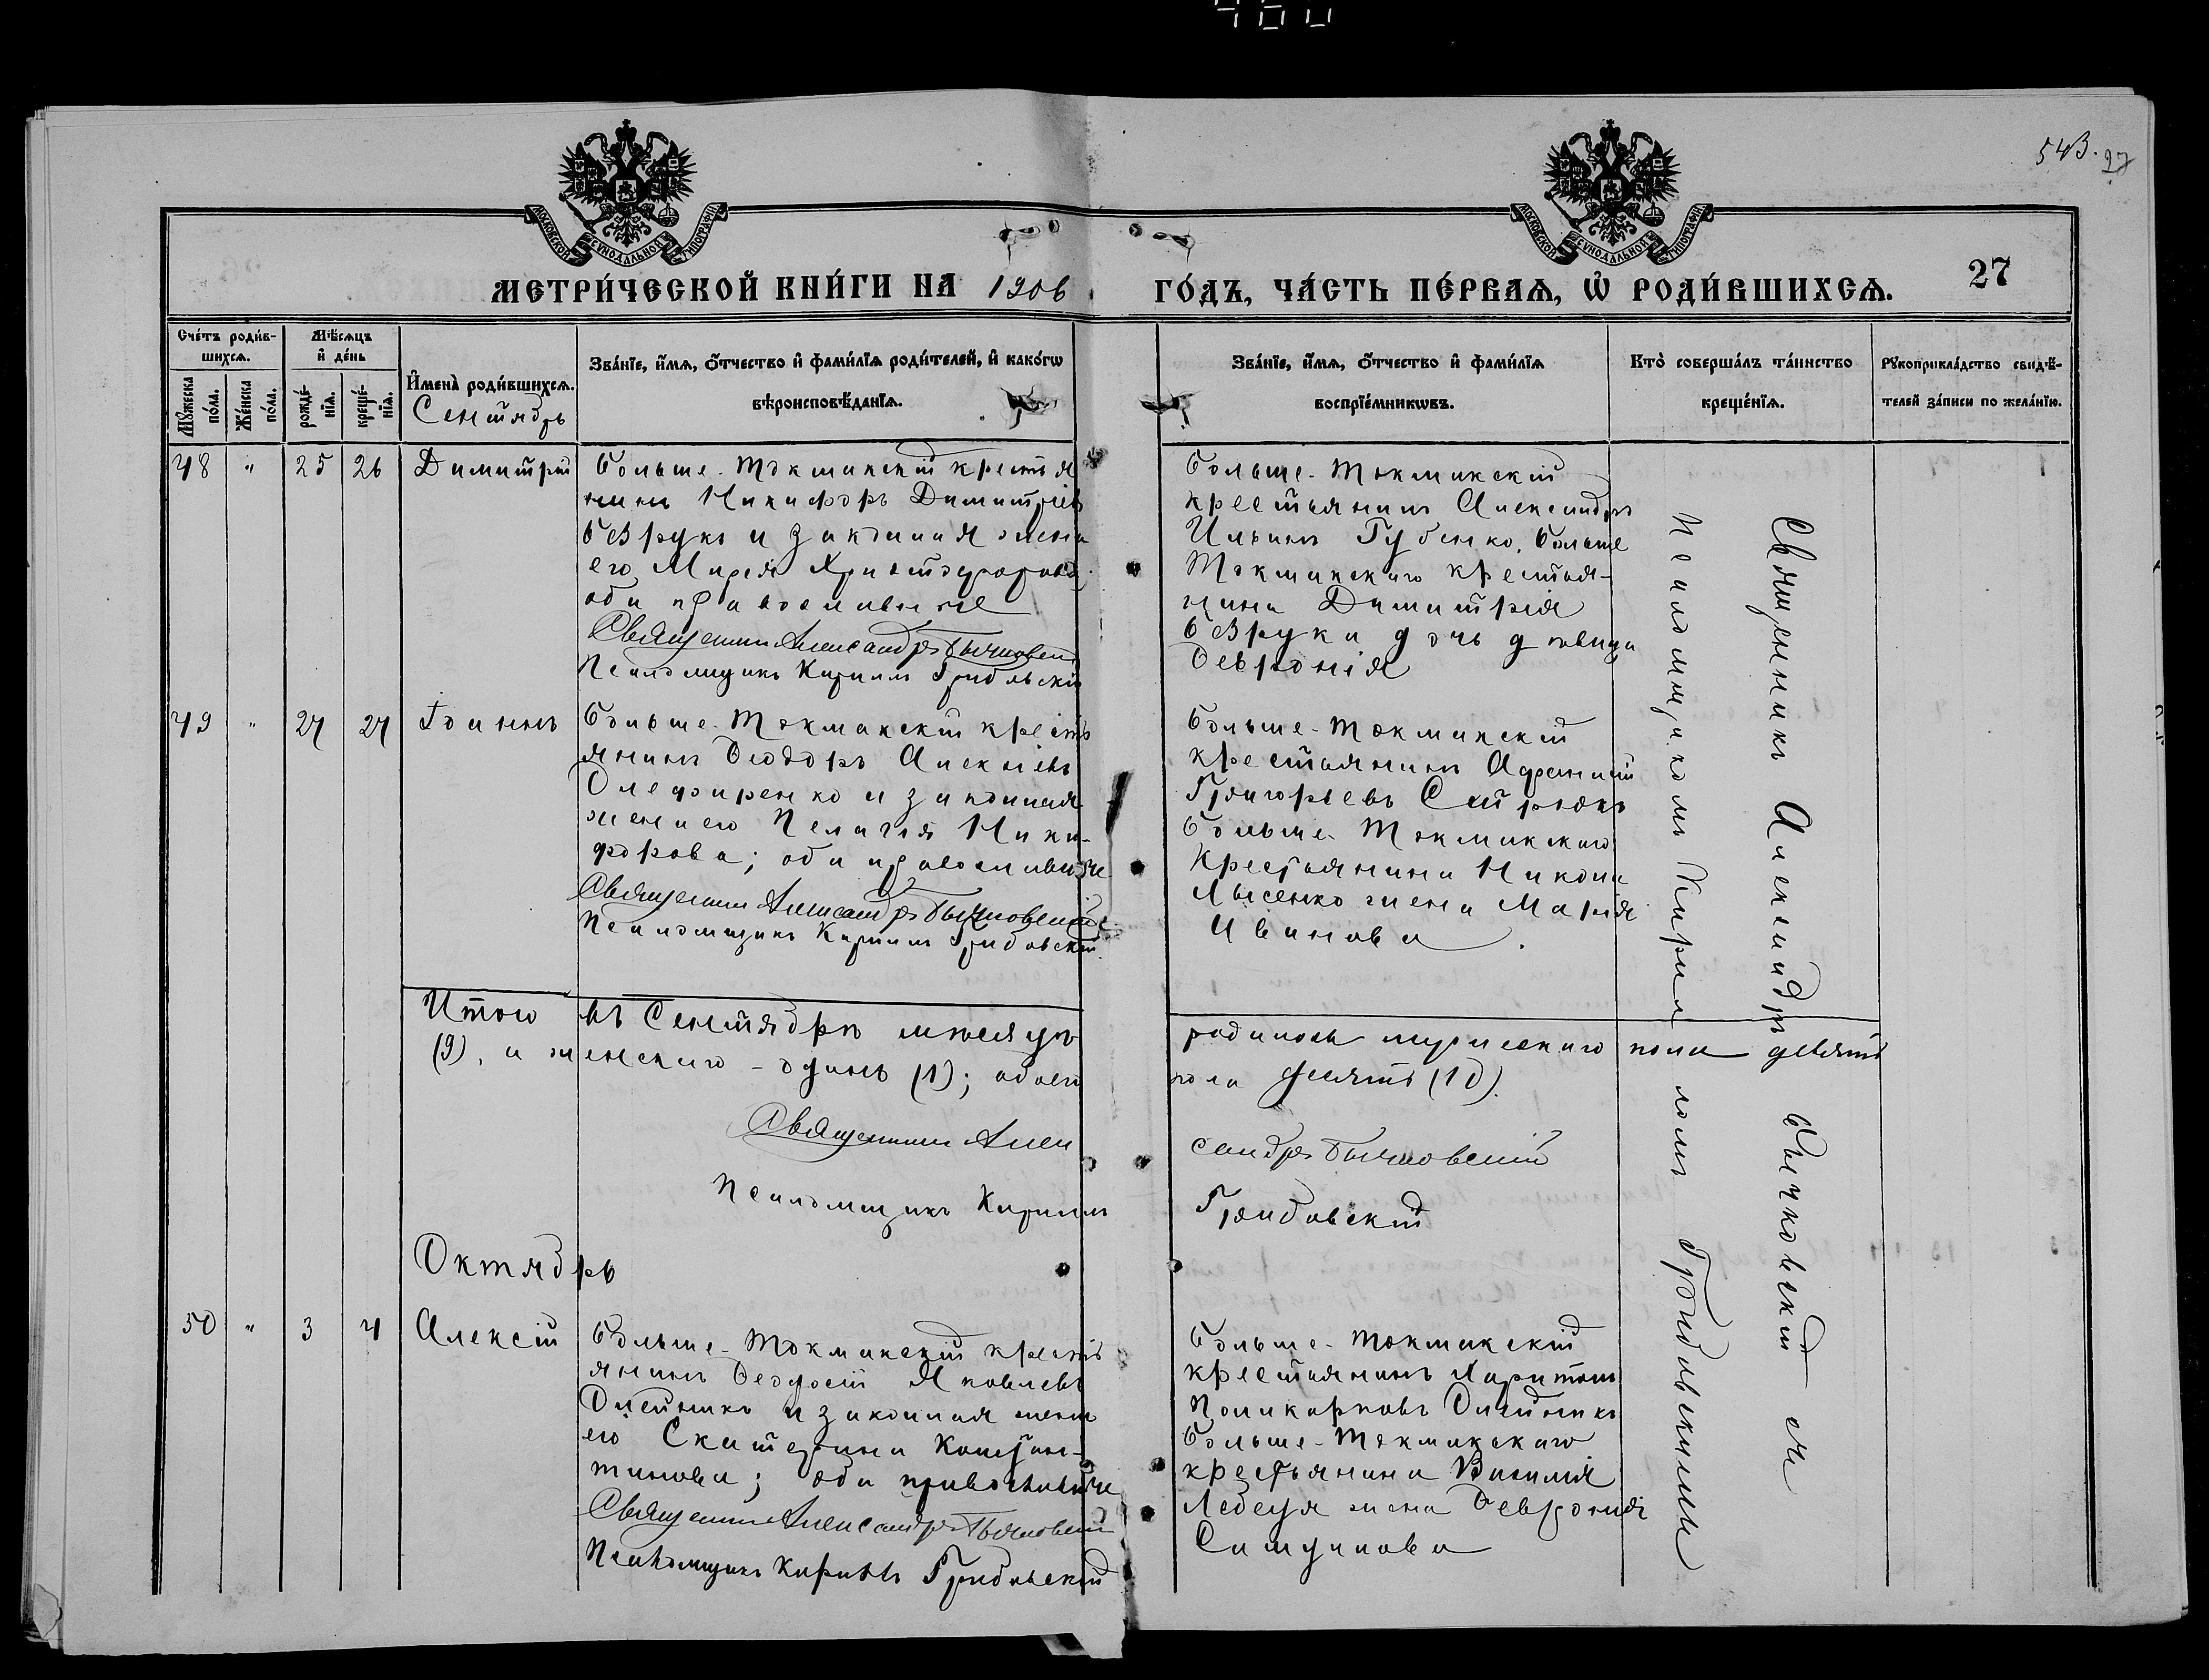 543. 27
МОСКОВСКОЙ СУНОДАЛЬНОЙ ТИПОГРАФІИ
МОСКОВСКОЙ СУНОДАЛЬНОЙ ТИПОГРАФІИ
МЕТРИ́ЧЕСКОЙ КНИ́ГИ НА 1906
ГО́ДЪ, ЧА́СТЬ ПЕ́РВАѦ, Ѡ РОДИ́ВШИХСѦ.
27
Сче́тъ роди́в-
шихсѧ.
Мѹжеска по́ла.
Же́нска по́ла.
Мѣ́сѧцъ
и҆ де́нь
рожде́-
нїѧ.
креще́-
нїѧ.
И҆мена̀ роди́вшихсѧ.
Сентябрь
Зва́нїе, и҆́мѧ, ѻ҆́тчество и҆ фами́лїѧ роди́телей, и҆ како́гѡ
вѣроисповѣ́данїѧ.
Зва́нїе, и҆́мѧ, ѻ҆́тчество и҆ фами́лїѧ
воспрїе́мникѡвъ.
Кто̀ соверша́лъ та́инство
креще́нїѧ.
Рѹкоприкла́дство свидѣ́-
телей за́писи по жела́нїю.
48 " 25 26 Димитрій
Больше-Токмакскій крестья
нинъ Никифоръ Димитріевъ
Безрукъ и законная жена
его Марія Христофорова
оба православные
Священникъ Александръ Бычковскій
Псаломщикъ Кириллъ Грибовскій
Больше-Токмакскій
крестьянинъ Александръ
Ильинъ Губенко, Больше
Токмакскаго крестья-
нина Димитрія
Безрука дочь девица
Февронія
49 " 27 27 Іоаннъ
Больше-Токмакскій кресть
янинъ Ѳеодоръ Алексіевъ
Олефиренко и законная
жена его Пелагія Ники-
форова; оба православные
Священникъ Александръ Бычковскій
Псаломщикъ Кириллъ Грибовскій
Больше-Токмакскій
крестьянинъ
Григорьевъ
Больше-Токмакскаго
крестьянина Никона
Лысенко жена Марія
Иванова.
Итого въ Сентябрѣ мѣсяцѣ
родилось мужескаго пола девять
(9), и женскаго - одинъ (1); обоего
пола десять (10).
Священникъ Алек
сандръ Бычковскій
Псаломщикъ Кириллъ
Грибовскій
Октябрь
50 " 3 4 Алексій
Больше-Токмакскій кресть
янинъ Ѳеодосій Яковлевъ
Олейникъ и законная жена
его Екатерина Констан-
тинова; оба православные
Священникъ Александръ Бычковскій
Псаломщикъ Кириллъ Грибовскій
Больше-Токмакскій
крестьянинъ Харитонъ
Поликарповъ Олейникъ
Больше-Токмакскаго
крестьянина Василія
жена Февронія
Священникъ Александръ Бычковскій съ
Псаломщикомъ Кирилломъ Грибовскимъ